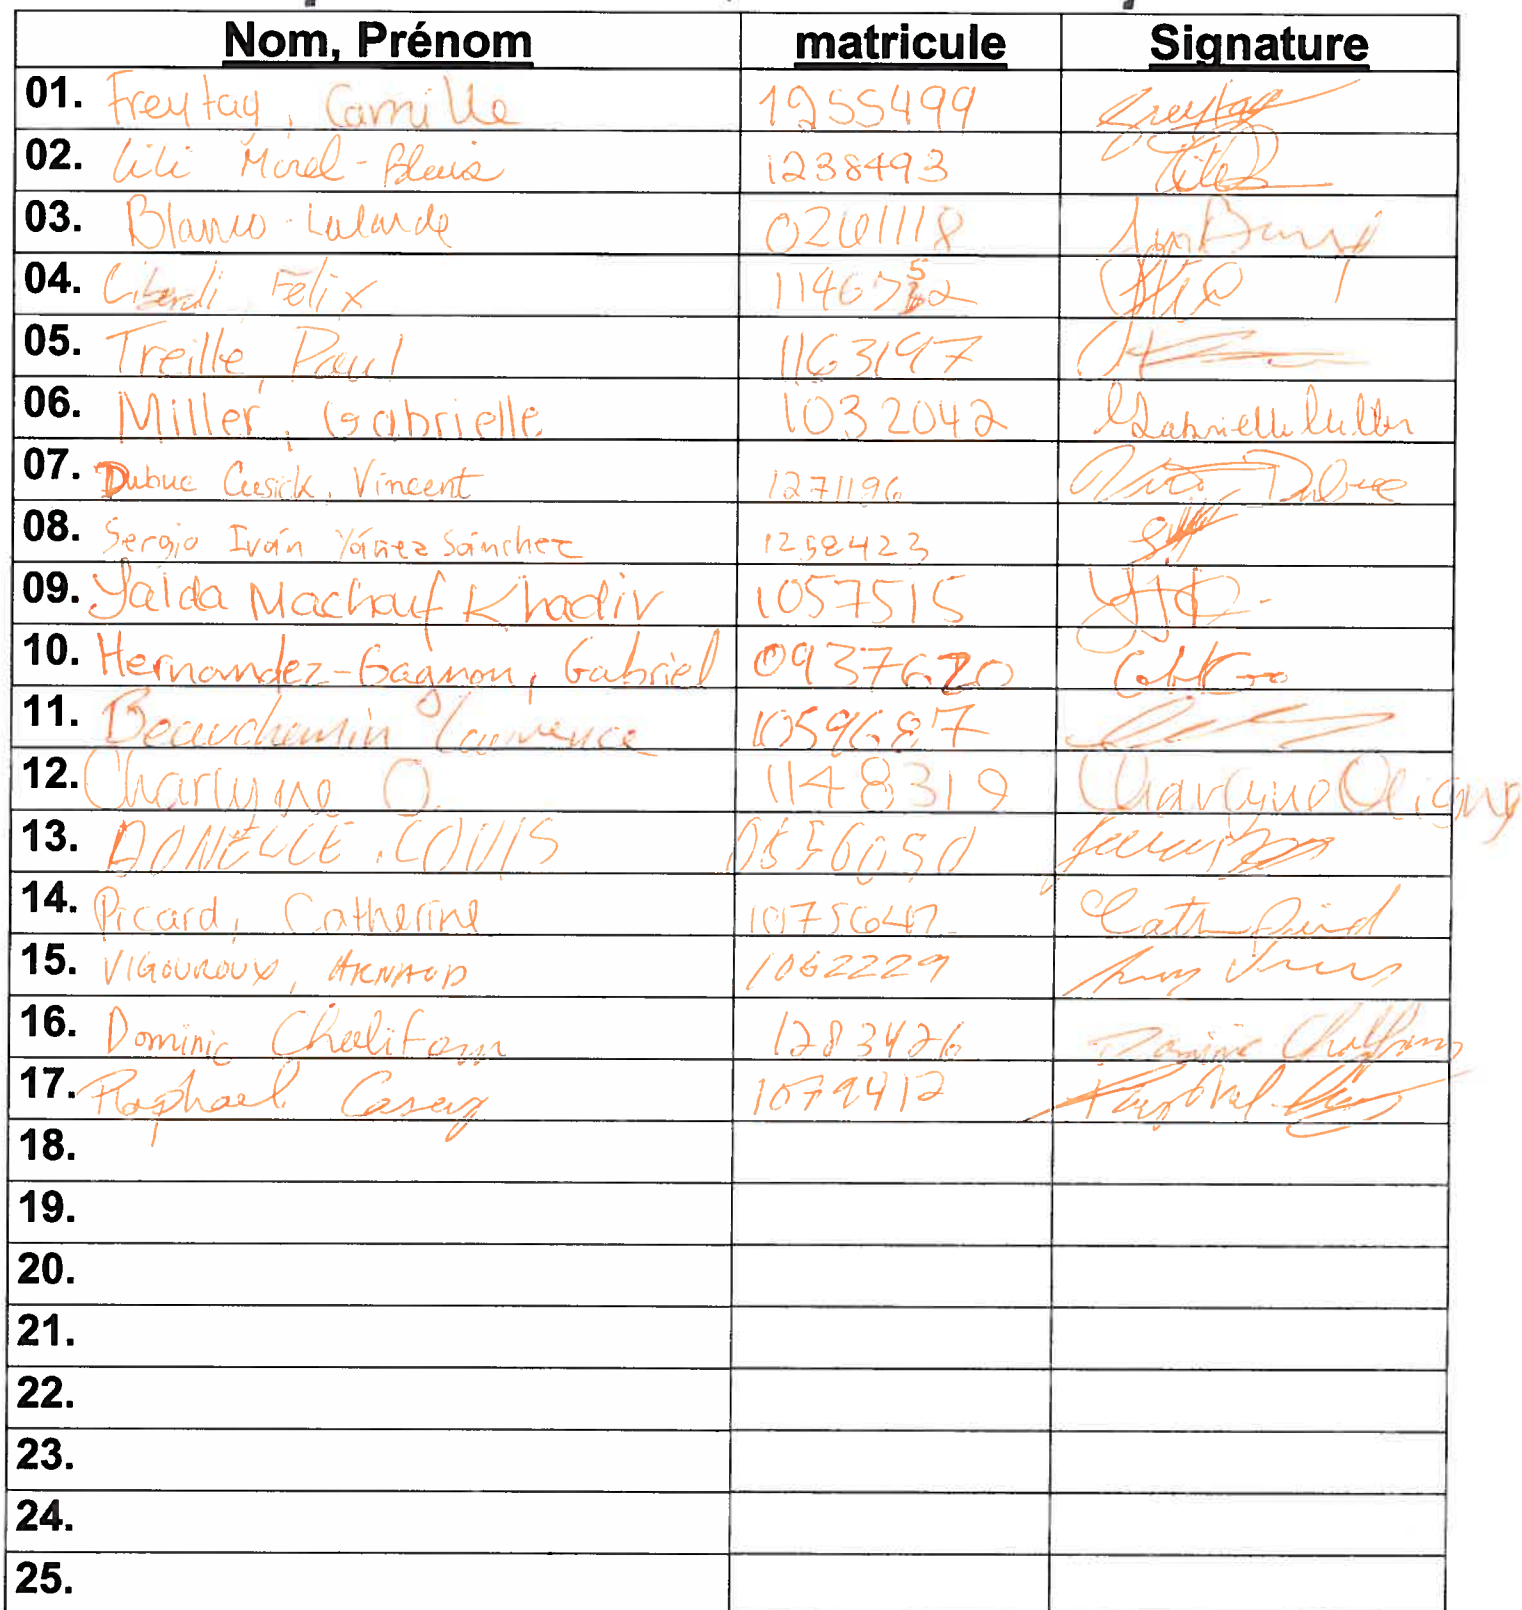 Nom, Prénom matricule Signature
01. Freytag, Camille 1255499 Freytag
02. Lili Morel-Blais 1238493
03. Blanco-Lalande 0261118
04. Liberali Félix 1146752
05. Treille, Paul 1163197
06. Miller, Gabrielle 1032042 Gabrielle Miller
07. Dubuc Cusick, Vincent 1271196 Dubuc
08. Sergio Iván Yáñez Sánchez 1258423
09. Yalda Machouf Khadir 1057515
10. Hernandez-Gagnon, Gabriel 0937620
11. Beauchemin Laurence 1059687
12. Charlyne O. 1148319 Charlyne Oligny
13. DONELLE, LOUIS
14. Picard, Catherine Cath Picard
15. VIGOUROUX, ARNAUD 1062229
16. Dominic Chalifour 1283426 Dominic Chalifour
17. Raphael Casey 1079412 Raphael
18.
19.
20.
21.
22.
23.
24.
25.